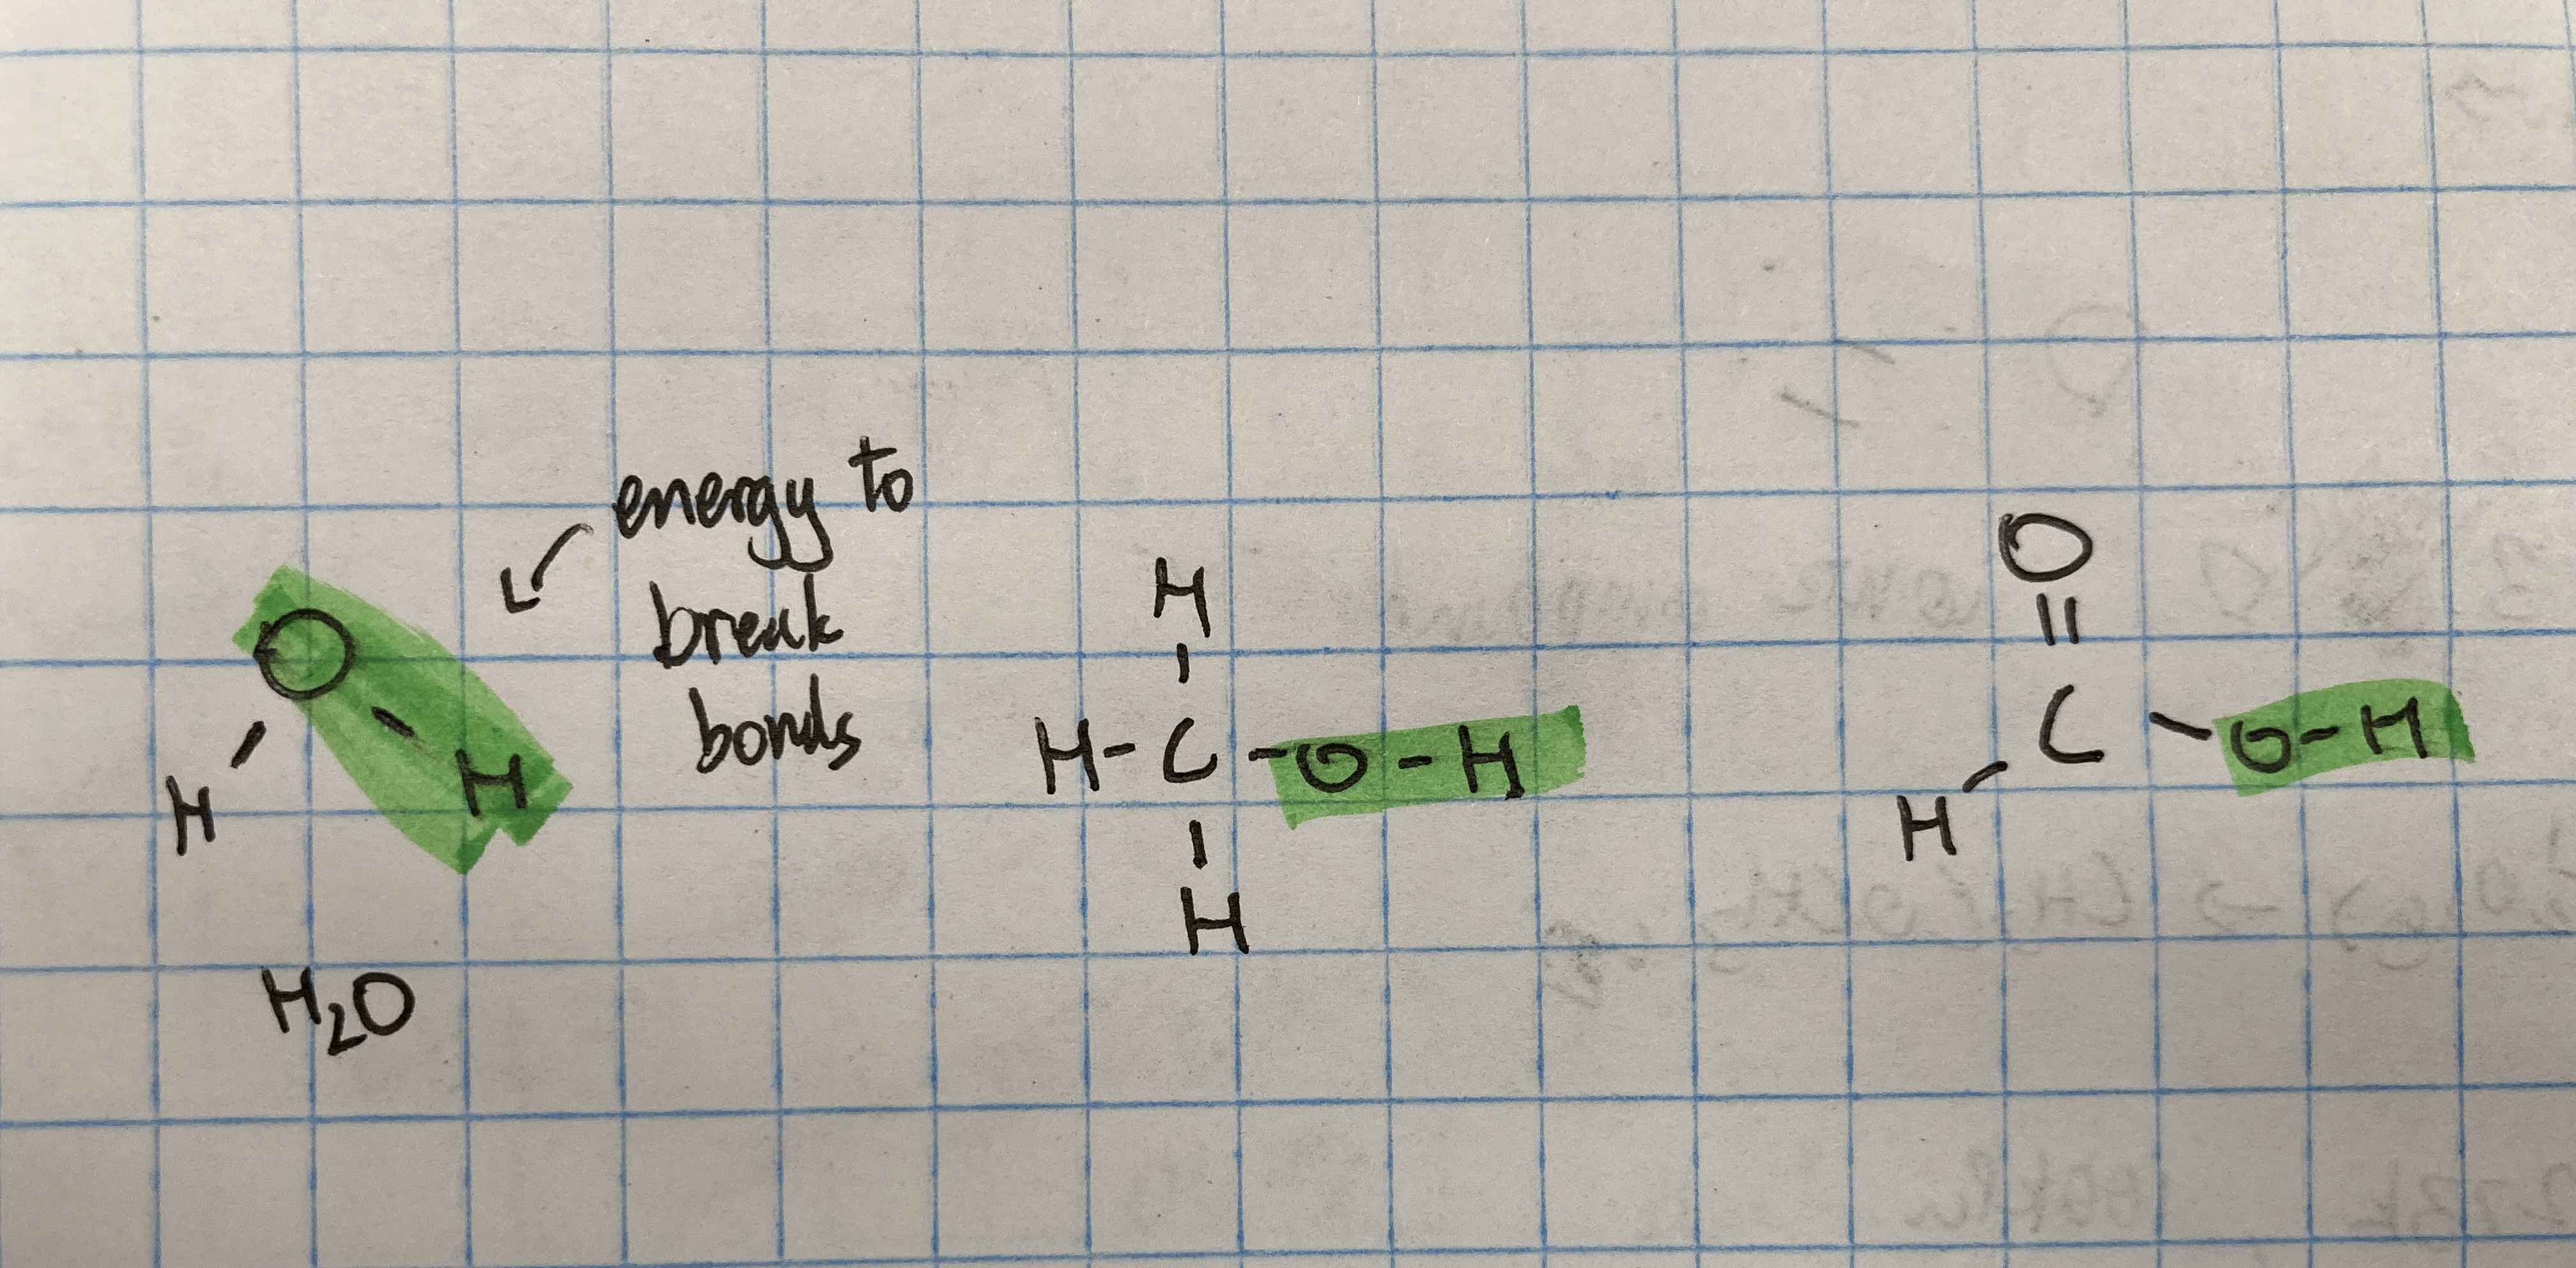 energy to
break
bonds
O
H
H
H2O
H
H-C-O-H
H
O
||
C-O-H
H